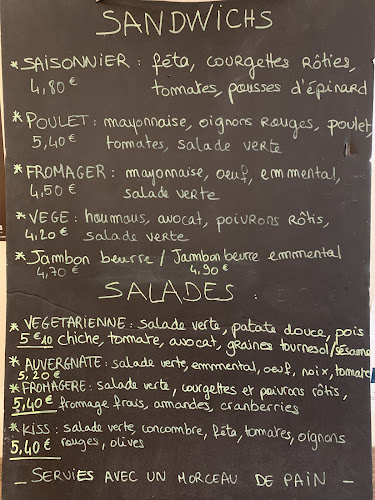 SANDWICHS
* SAISONNIER : fêta, courgettes rôties,
4,80 € tomates, pousses d'épinard
* POULET : mayonnaise, oignons rouges, poulet,
5,40 € tomates, salade verte
* FROMAGER : mayonnaise, oeuf, emmental,
4,50 € salade verte
* VEGE : houmous, avocat, poivrons rôtis,
4,20 € salade verte
* Jambon beurre / Jambon beurre emmental
4,70 € 4,90 €
SALADES :
* VEGETARIENNE : salade verte, patate douce, pois
5€10 chiche, tomate, avocat, graines tournesol/sésame
* AUVERGNATE : salade verte, emmental, oeuf, noix, tomate
5,20 €
* FROMAGERE : salade verte, courgettes et poivrons rôtis,
5,40 € fromage frais, amandes, cranberries
* KISS : salade verte, concombre, fêta, tomates, oignons
5,40 € rouges, olives
_ SERVIES AVEC UN MORCEAU DE PAIN _